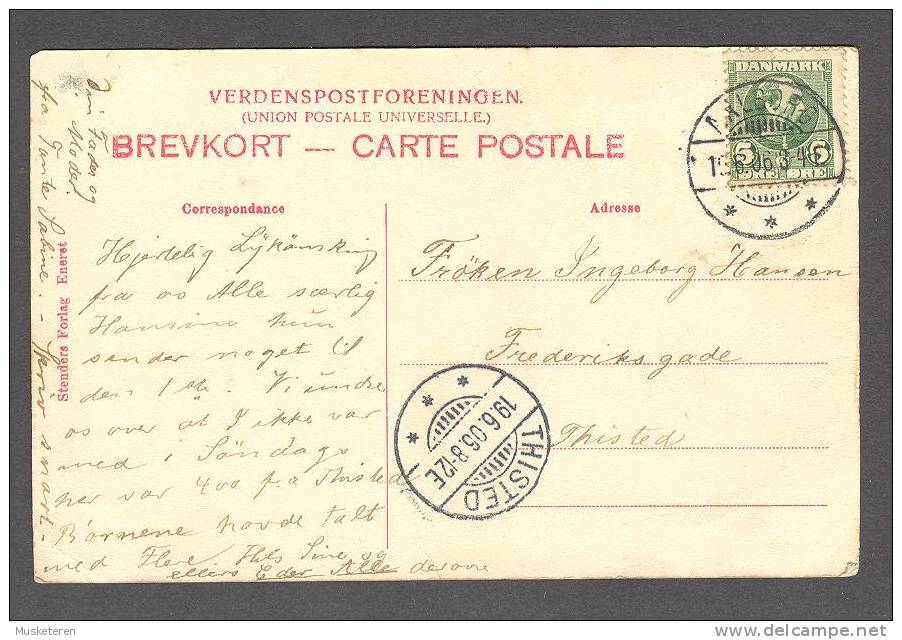 VERDENSPOSTFORENINGEN.
(UNION POSTALE UNIVERSELLE.)
BREVKORT — CARTE POSTALE
DANMARK
5 5
ØRE ØRE
Correspondance
Adresse
Hjertelig Lykönskning
fra os Alle særlig
Hansine hun
sender noget til
den 1ste. Vi undre
os over at I ikke var
med i Söndags
her var 400 fra Thisted
Börnene havde talt
med Flere Hils Sine og
ellers Eder Alle derovre
Din Fader og
Moder
fra Tante Sabine. - Skriv snart -
Stenders Forlag Eneret
Fröken Ingeborg Hansen
Frederiksgade
Thisted
THISTED
19.6.06.8-12E
Musketeren
delcampe.net